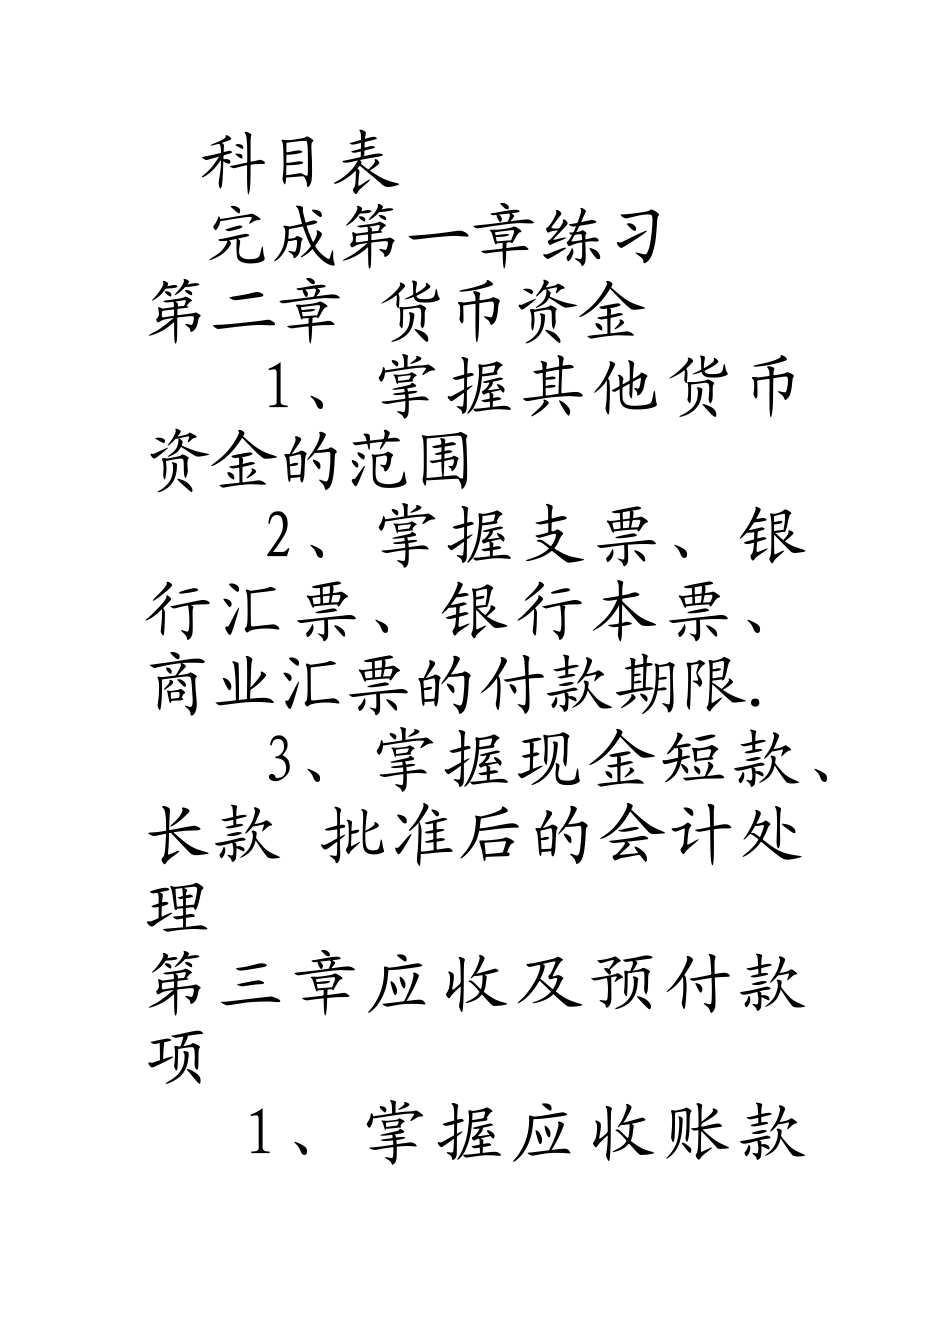 科目表
完成第一章练习
第二章 货币资金
1、掌握其他货币
资金的范围
2、掌握支票、银
行汇票、银行本票、
商业汇票的付款期限.
3、掌握现金短款、
长款 批准后的会计处
理
第三章应收及预付款
项
1、掌握应收账款